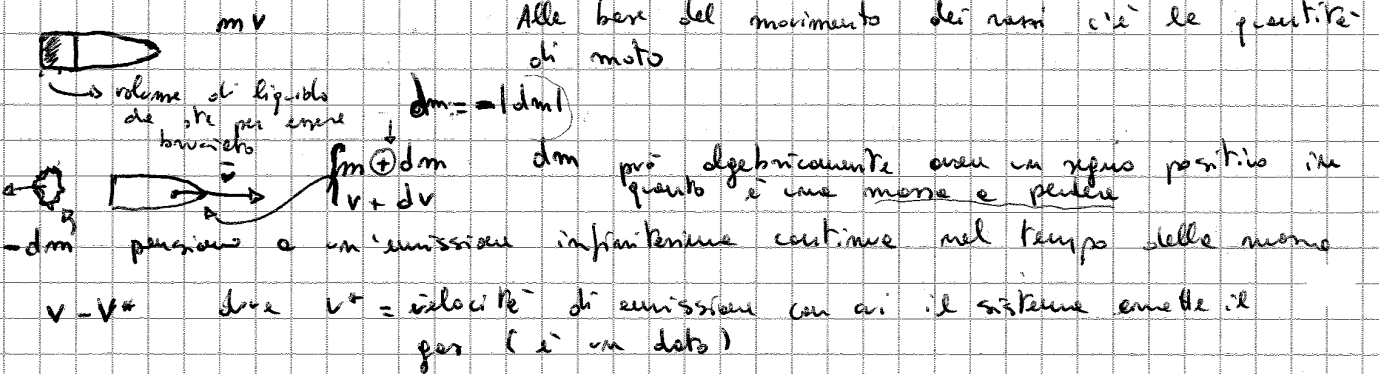 m v
Alla base del movimento dei razzi c'è la quantità
di moto
→ volume di liquido
che sta per essere
bruciato
dm = -|dm|
m + dm
v + dv
dm può algebricamente avere un segno positivo in
quanto è una massa a perdere
-dm pensiamo a un'emissione infinitesima continua nel tempo della massa
v - v* dove v* = velocità di emissione con cui il sistema emette il
gas (è un dato)